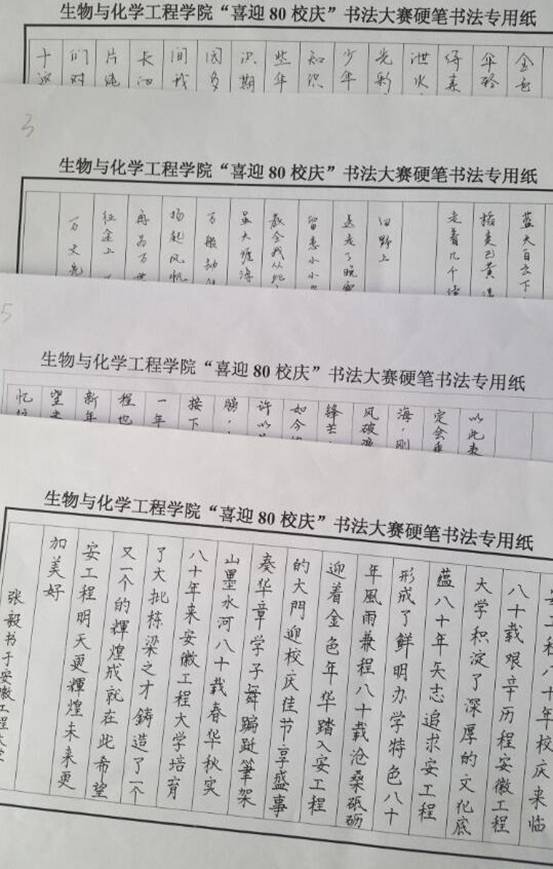 生物与化学工程学院“喜迎80校庆”书法大赛硬笔书法专用纸
金色
伞
得未
泄火
光彩
少年
知识
些年
识期
因多
间我
长河
片纯
们对
十这
3
生物与化学工程学院“喜迎80校庆”书法大赛硬笔书法专用纸
蓝天白云下
走着几千
田野上
送走了晚
留恋小小
教会我从此
虽大
万般劫
扬起风帆
再
征途上
万丈
5
生物与化学工程学院“喜迎80校庆”书法大赛硬笔书法专用纸
以此来
定会重
海，刚
风破浪
锋芒
如今
许以
肠，
接下
一年
程也
新年
望未
忆
生物与化学工程学院“喜迎80校庆”书法大赛硬笔书法专用纸
安工程八十年校庆来临
八十载艰辛历程安徽工程
大学积淀了深厚的文化底
蕴八十年矢志追求安工程
形成了鲜明办学特色八十
年風雨兼程八十载沧桑砥砺
迎着金色年华踏入安工程
的大門迎校庆佳节享盛事
奏华章学子舞蹁跹筆架
山墨水河八十载春华秋实
八十年来安徽工程大学培育
了大批栋梁之才鑄造了一个
又一个的輝煌成就在此希望
安工程明天更輝煌未来更
加美好
张毅书于安徽工程大学